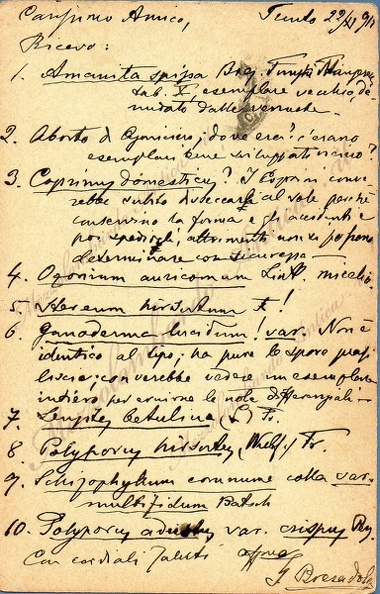 Carissimo Amico, Trento 22/XI 911
Ricevo:
1. Amanita spissa Bres. Funghi Mang.
tab. X, esemplare vecchio, de-
nudato dalle verruche.
2. Aborto di Agaricino; dove era? c'erano
esemplari bene sviluppati vicino?
3. Coprinus domesticus? I Coprini conver-
rebbe subito disseccarli al sole perchè
conservino la forma e gli accidenti e
poi spedirli, altrimenti non si possono
determinare con sicurezza
4. Ozonium auricomum Link. micelio.
5. Stereum hirsutum Fr!
6. Ganoderma lucidum! var. Non è
identico al tipo; ha pure le spore quasi
liscie; converrebbe vedere un esemplare
intiero per cavarne le note differenziali
7. Lenzites betulina (L) Fr.
8. Polyporus hirsutus, (Wulf.) Fr.
9. Schizophyllum commune colla var.
multifidum Batsch
10. Polyporus adustus var. crispus
Con cordiali saluti affmo
J Bresadola